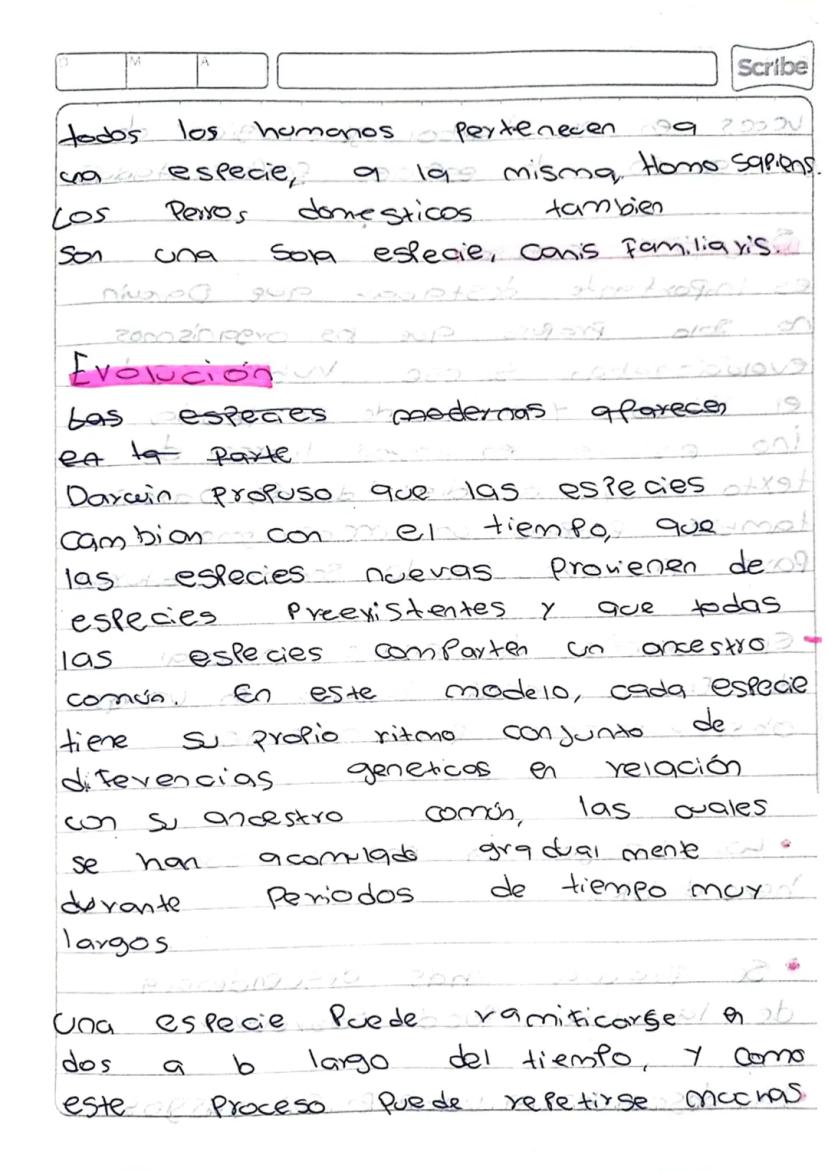 D M A
Scribe
todos los humanos pertenecen a
una especie, a la misma, Homo sapiens.
Los Perros domesticos tambien
son una sola especie, canis familiaris.
Evolución
Las especies modernas aparecen
en la parte
Darwin propuso que las especies
cambian con el tiempo, que
las especies nuevas provienen de
especies Preexistentes y que todas
las especies comparten un ancestro
común. En este modelo, cada especie
tiene su propio ritmo conjunto de
diferencias geneticas en relación
con su ancestro común, las cuales
se han acomulado gradual mente
durante Periodos de tiempo muy
largos
Una especie Puede ramificarse en
dos a lo largo del tiempo, y como
este Proceso Puede repetirse muchas